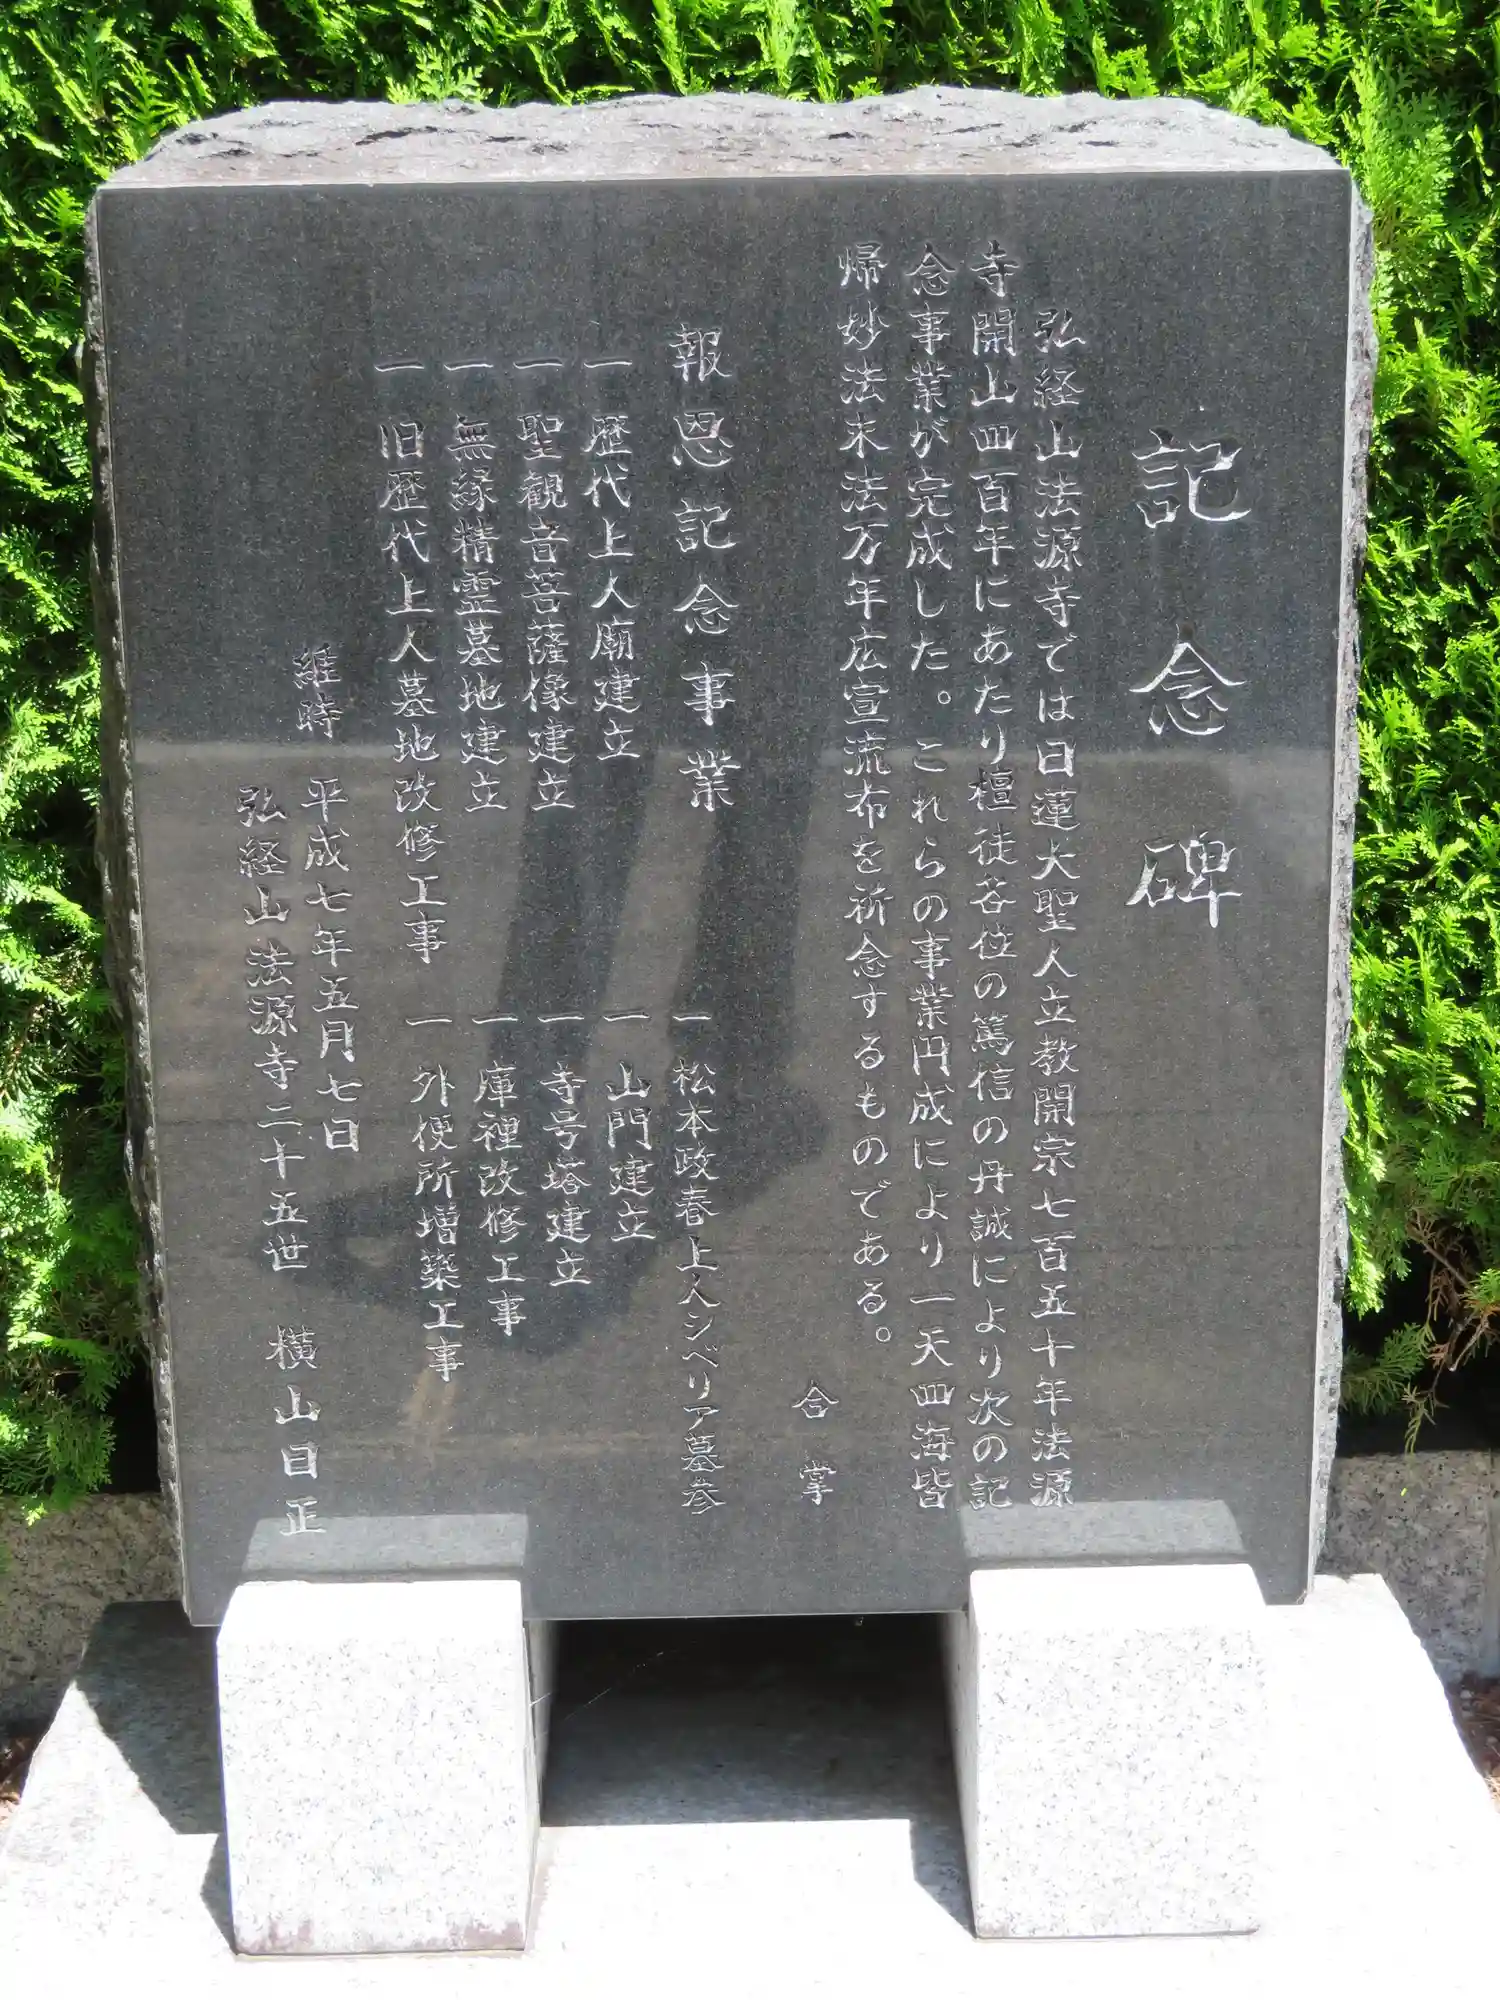 記念碑
弘経山法源寺では日蓮大聖人立教開宗七百五十年法源
寺開山四百年にあたり檀徒各位の篤信の丹誠により次の記
念事業が完成した。これらの事業円成により一天四海皆
帰妙法末法万年広宣流布を祈念するものである。
合掌
報恩記念事業
一 歴代上人廟建立
一 聖観音菩薩像建立
一 無縁精霊墓地建立
一 旧歴代上人墓地改修工事
一 松本政春上人シベリア墓参
一 山門建立
一 寺号塔建立
一 庫裡改修工事
一 外便所増築工事
維時 平成七年五月七日
弘経山法源寺二十五世 横山日正